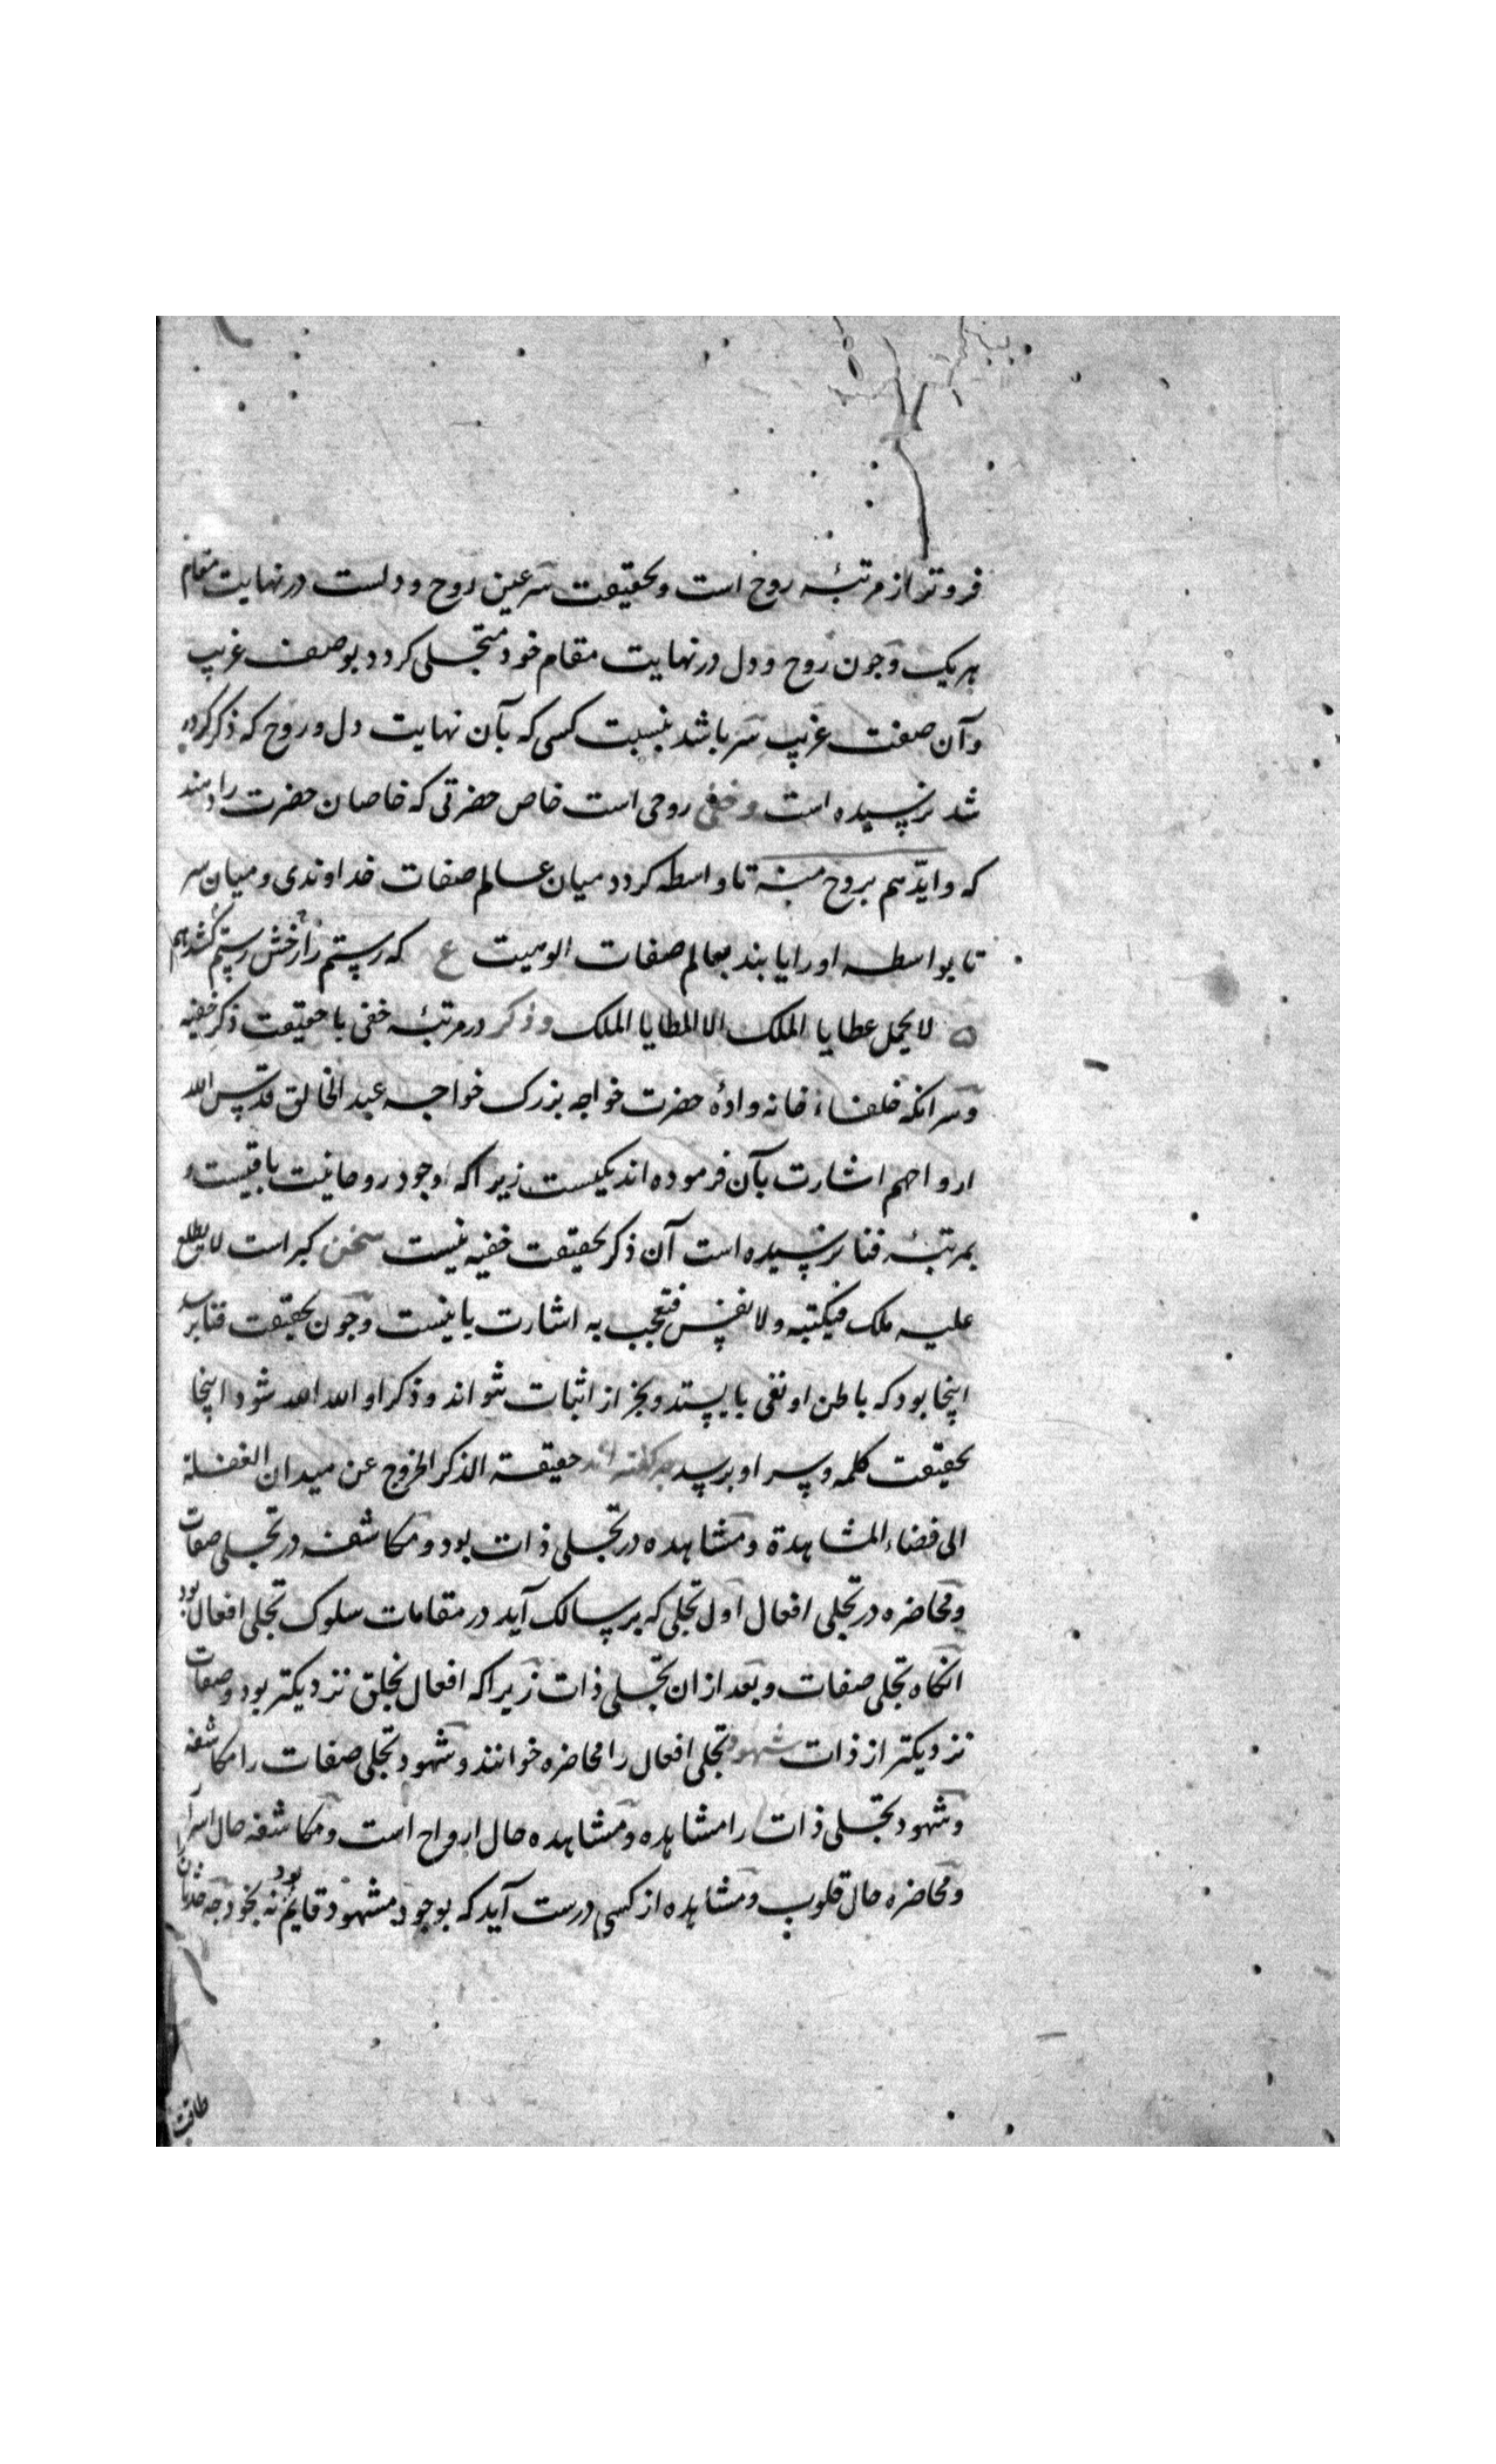 فروتر از مرتبهٔ روح است و بحقیقت سر عین روح و دلست در نهایت مقام
هر یک و چون روح و دل در نهایت مقام خود متجلی کردد بوصف غریب
و آن صفت غریب سر باشد بنسبت کسی که بآن نهایت دل و روح که ذکر کرده
شد نرسیده است و خفی روحی است خاص حضرتی که خاصان حضرت را دهند
که وایّدهم بروح منه تا واسطه کردد میان عالم صفات خداوندی و میان سر
تا بواسطه او را یابند بعالم صفات الوهیت ع که رستم را رخش رستم کشد هم
لا یحمل عطایا الملک الا المطایا الملک و ذکر در مرتبهٔ خفی با حقیقت ذکر خفیه
و سر انکه خلفاء خانه وادهٔ حضرت خواجه بزرک خواجه عبد الخالق قدس الله
ارواحهم اشارت بآن فرموده اند یکیست زیرا که وجود روحانیت باقیست و
بمرتبهٔ فنا نرسیده است آن ذکر بحقیقت خفیه نیست سخن کبراست لا یطلع
علیه ملک فیکتبه ولا نفس فتعجب به اشارت باینست و چون بحقیقت فنا برسد
اینجا بود که باطن او نفی بایستد و بجز از اثبات نتواند و ذکر او الله الله شود اینجا
بحقیقت کلمه و سر او برسد که کفته اند حقیقة الذکر الخروج عن میدان الغفلة
الی فضاء المشاهدة و مشاهده در تجلی ذات بود و مکاشفه در تجلی صفات
و محاضره در تجلی افعال اول تجلی که بر سالک آید در مقامات سلوک تجلی افعال بود
انکاه تجلی صفات و بعد از ان تجلی ذات زیرا که افعال بخلق نزدیکتر بود و صفات
نزدیکتر از ذات شهود تجلی افعال را محاضره خوانند و شهود تجلی صفات را مکاشفه
و شهود تجلی ذات را مشاهده و مشاهده حال ارواح است و مکاشفه حال اسرار
و محاضره حال قلوب و مشاهده از کسی درست آید که بوجود مشهود قایم بود نه بخود چه حدثان
طاقت